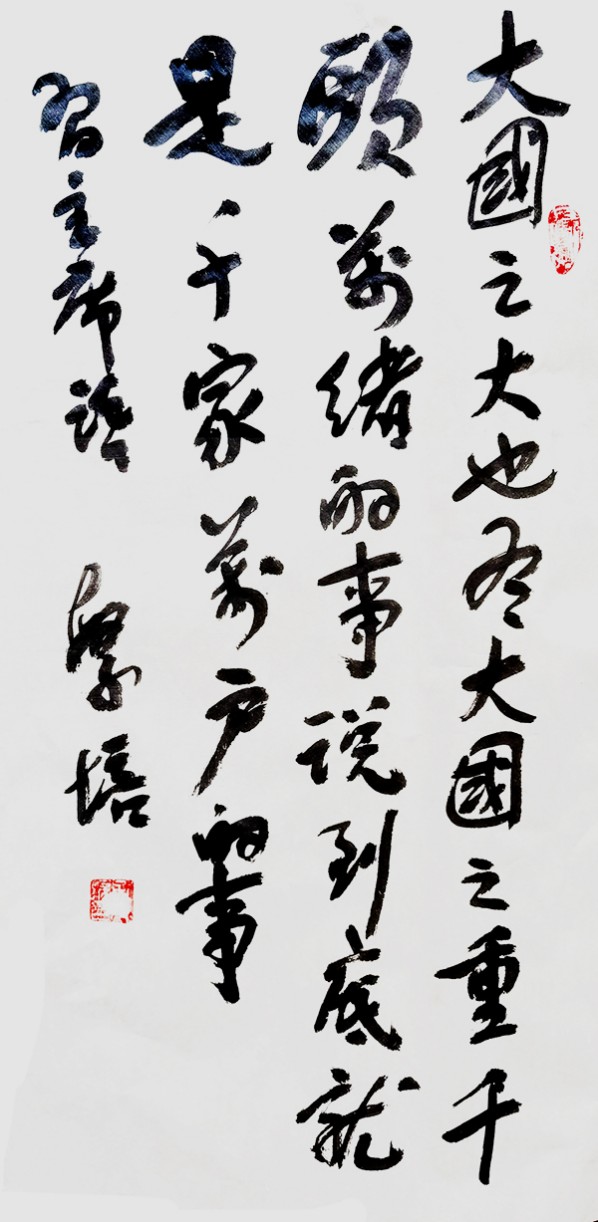 大國之大也有大國之重千
頭萬緒的事说到底就
是千家萬户的事
習主席語
培